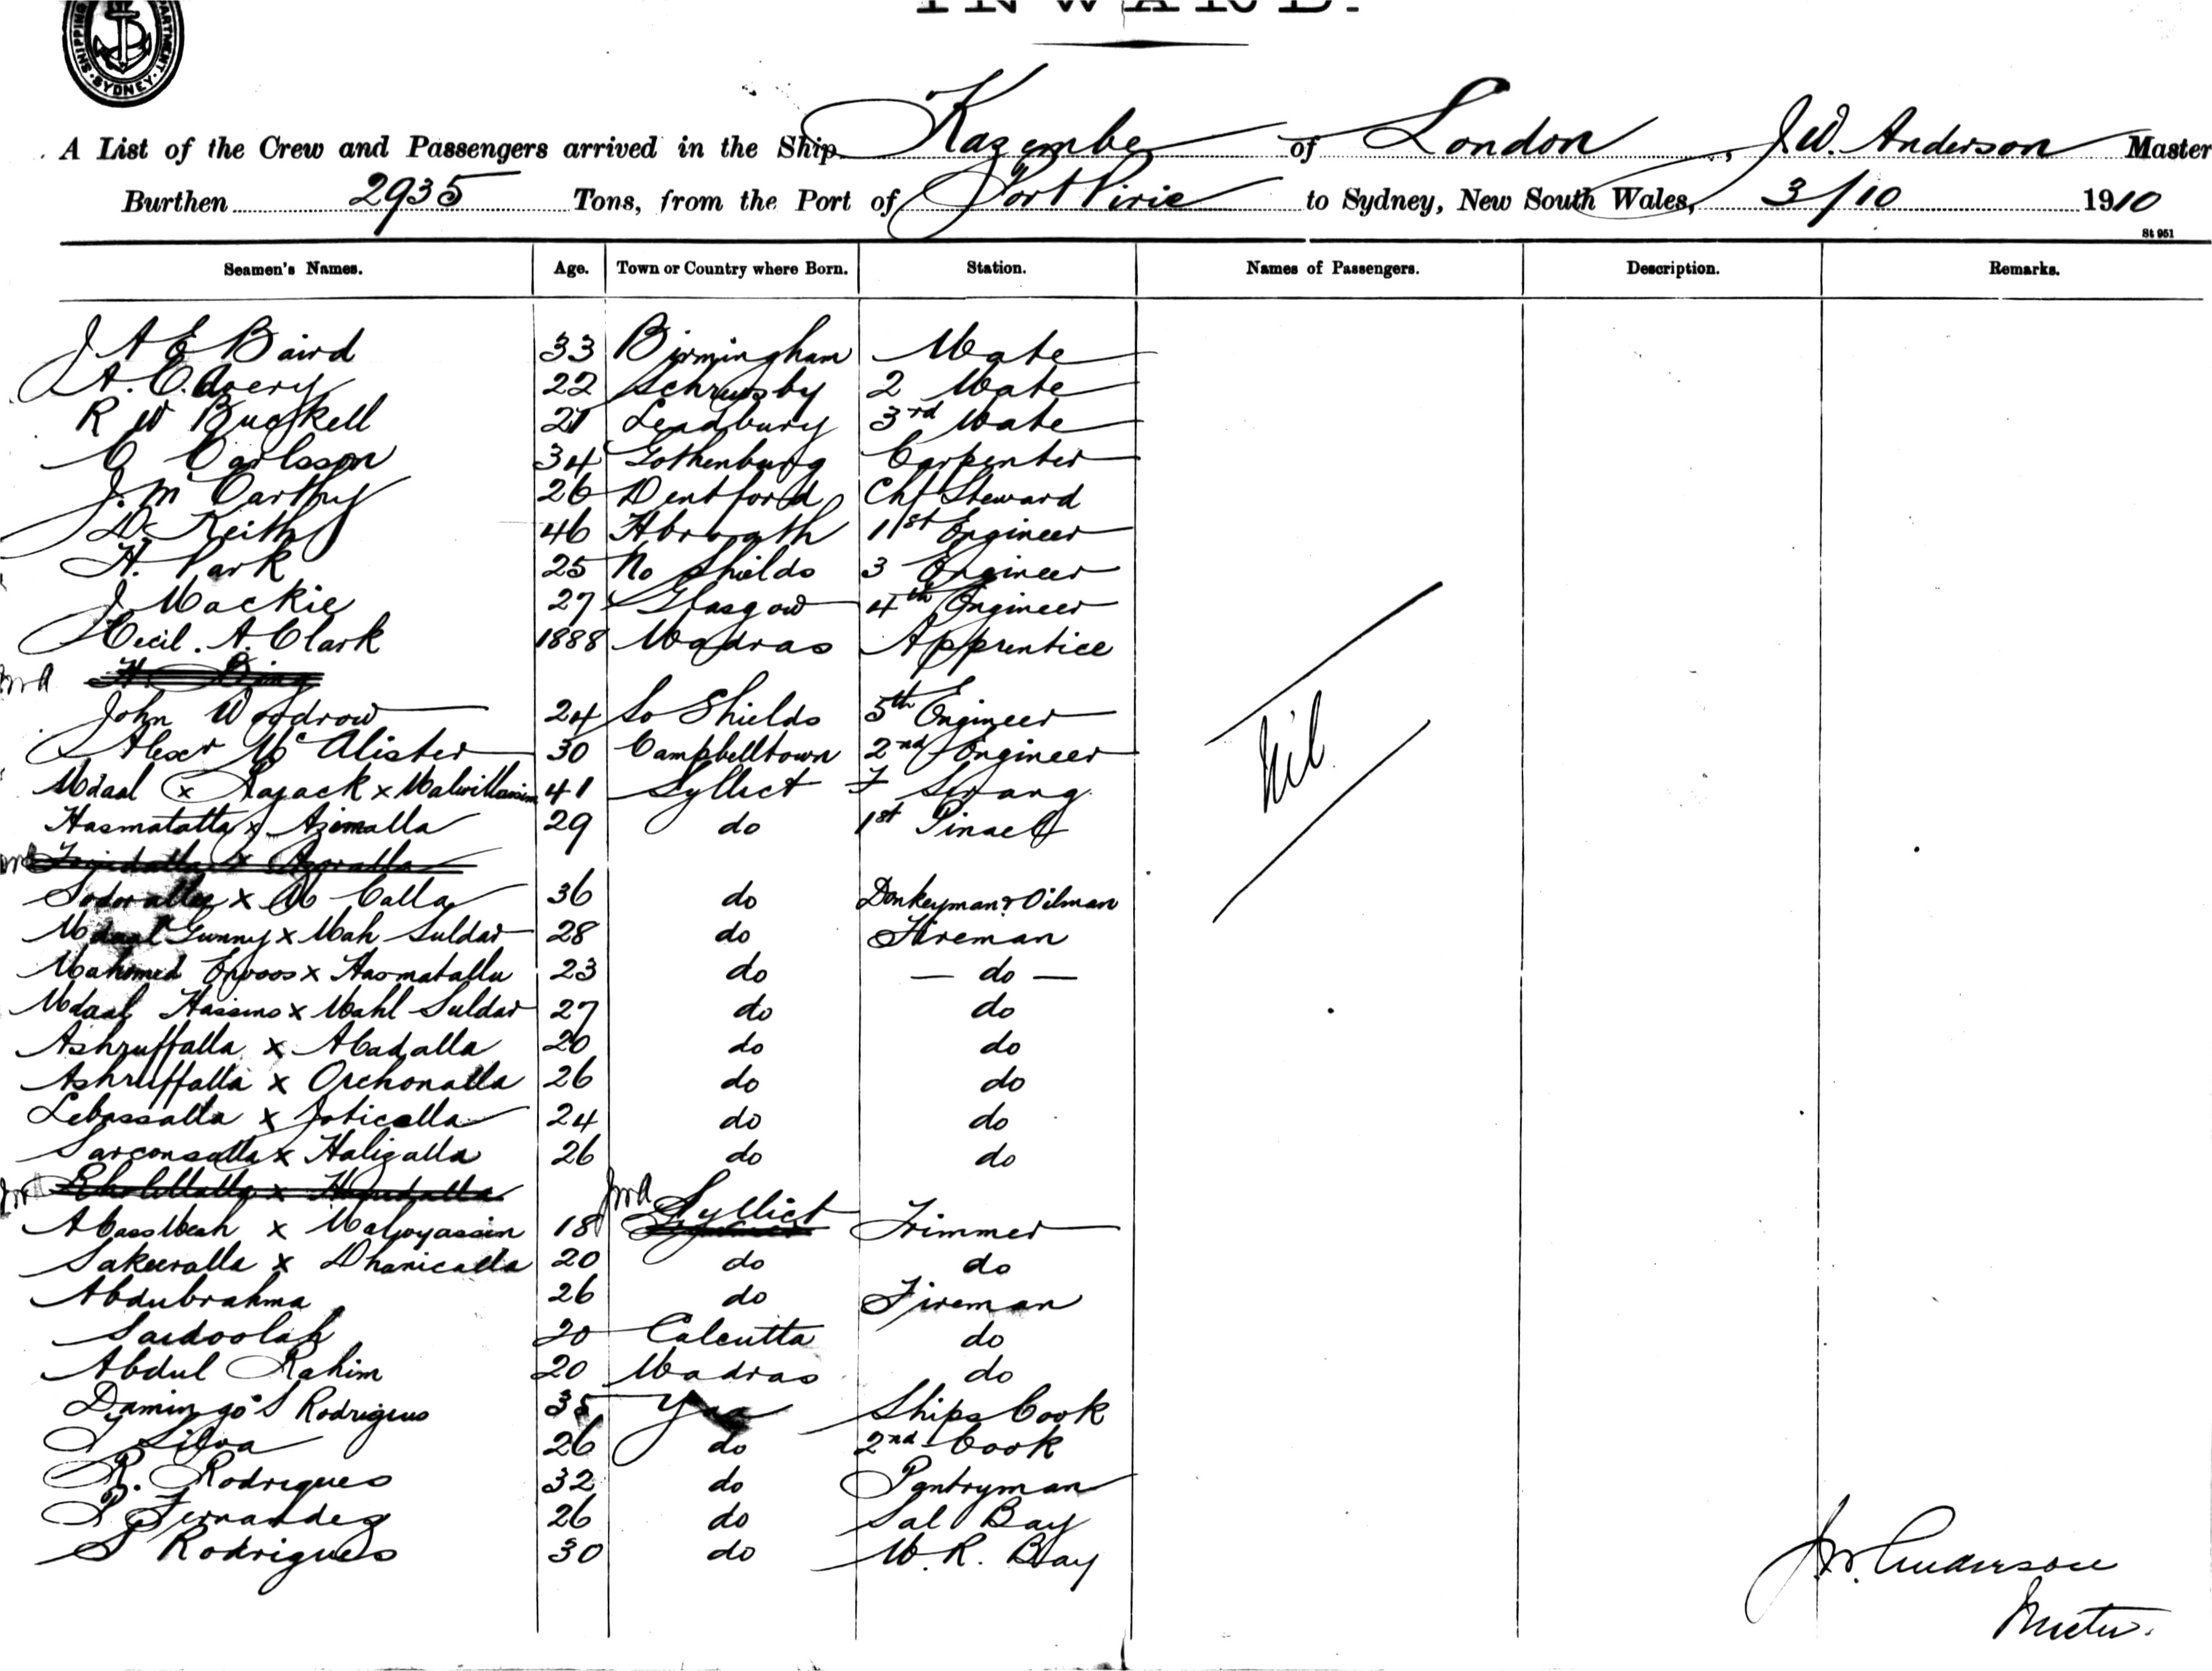 INWARD.
SHIPPING DEPARTMENT SYDNEY
A List of the Crew and Passengers arrived in the Ship Kazembe of London, J.W. Anderson Master
Burthen 2935 Tons, from the Port of Port Pirie to Sydney, New South Wales, 3/10 1910
St 951
Seamen's Names. Age. Town or Country where Born. Station. Names of Passengers. Description. Remarks.
J A E Baird 33 Birmingham Mate
A. C. Avery 22 2 Mate
R W Buckell 21 Leadbury 3rd Mate
C Carlsson 34 Gothenburg Carpenter
J. McCarthy 26 Deptford Chf Steward
D. Keith 46 Abroath 1st Engineer
H. Park 25 No Shields 3 Engineer
J. Mackie 27 Glasgow 4th Engineer
Cecil. A. Clark 1888 Madras Apprentice
JWA
John Woodrow 24 So Shields 5th Engineer
Alexr McAlister 30 Campbelltown 2nd Engineer
Mdaal x Rajack x 41 Syllect F Serang
Hasmatatta x Ajimalla 29 do 1st
Sodorallee x Ab Calla 36 do Donkeyman & Oilman
Mdaal Gunny x Mah Suldar 28 do Fireman
Mahomed x Hasmatalla 23 do — do —
Mdaal Hassims x Mahl Suldar 27 do do
Ashruffalla x Abadalla 20 do do
Ashruffalla x Orchonalla 26 do do
Lebassalla x Joticalla 24 do do
Sarconsalla x Haligalla 26 do do
JWA
Abass Meah x Malwyassin 18 Syllict Trimmer
Sakeeralla x Dhanicalla 20 do do
Abdubrahma 26 do Fireman
Saidoolah 20 Calcutta do
Abdul Rahim 20 Madras do
Damingo S Rodrigues 35 Ships Cook
Silva 26 do 2nd Cook
R. Rodrigues 32 do Pantryman
P Fernandez 26 do Sal Boy
S Rodrigues 30 do M. R. Boy
Nil
J.W. Anderson
Master.